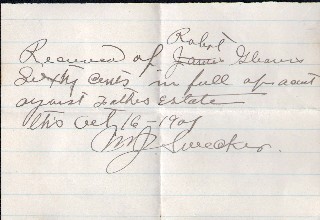 Robert
Received of James Gleaves
Sixty cents in full of acct
against Fathers Estate
this Oct 16-1901
M J Swecker.